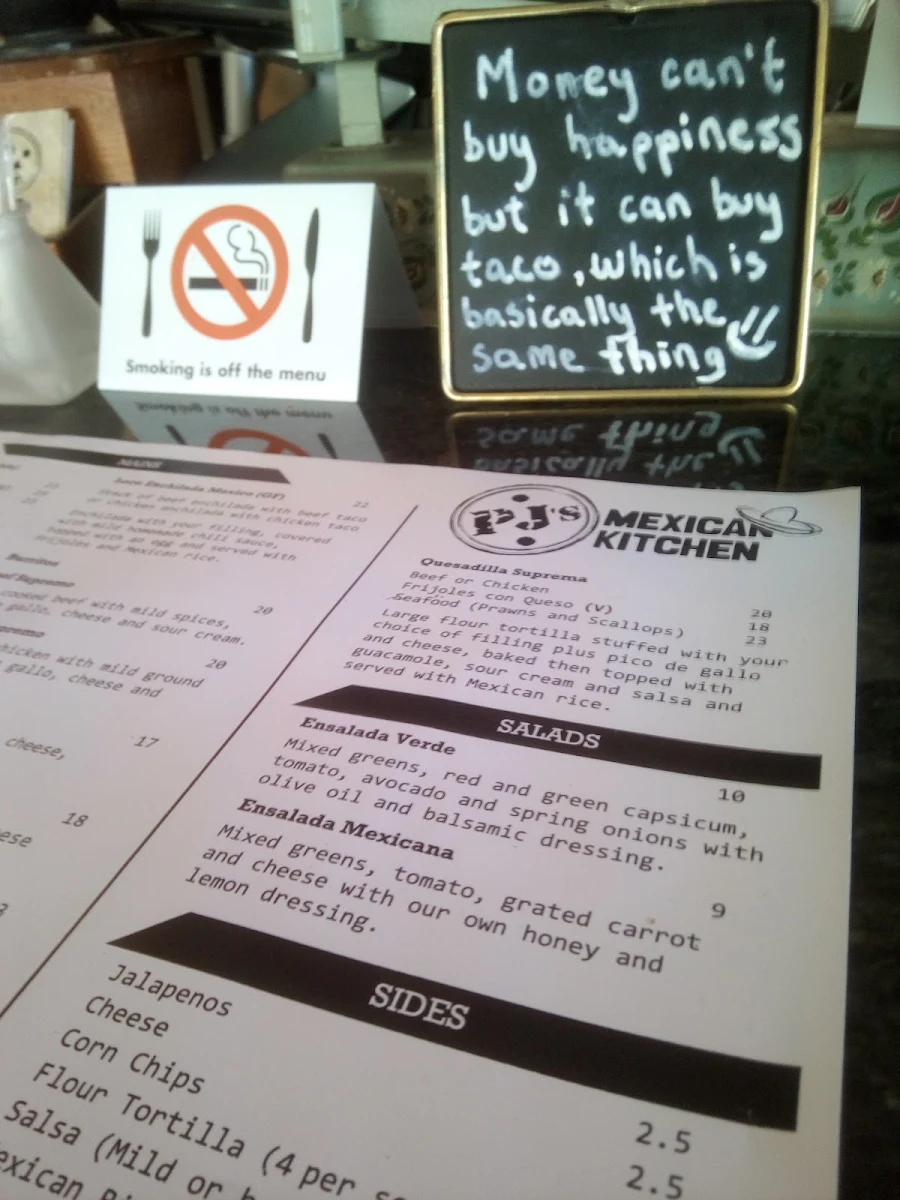 Money can't
buy happiness
but it can buy
taco, which is
basically the
same thing
Smoking is off the menu
MAINS
Loco Enchilada Mexico (GF) 22
Stack of beef enchilada with beef taco
or chicken enchilada with chicken taco
Enchilada with your filling, covered
with mild homemade chili sauce,
topped with an egg and served with
Frijoles and Mexican rice.
Burritos
Supremo 20
cooked beef with mild spices,
gallo, cheese and sour cream.
20
chicken with mild ground
gallo, cheese and
17
cheese,
18
PJ's MEXICAN
KITCHEN
Quesadilla Suprema
Beef or Chicken 20
Frijoles con Queso (V) 18
Seafood (Prawns and Scallops) 23
Large flour tortilla stuffed with your
choice of filling plus pico de gallo
and cheese, baked then topped with
guacamole, sour cream and salsa and
served with Mexican rice.
SALADS
Ensalada Verde 10
Mixed greens, red and green capsicum,
tomato, avocado and spring onions with
olive oil and balsamic dressing.
Ensalada Mexicana 9
Mixed greens, tomato, grated carrot
and cheese with our own honey and
lemon dressing.
SIDES
Jalapenos 2.5
Cheese 2.5
Corn Chips
Flour Tortilla (4 per
Salsa (Mild or